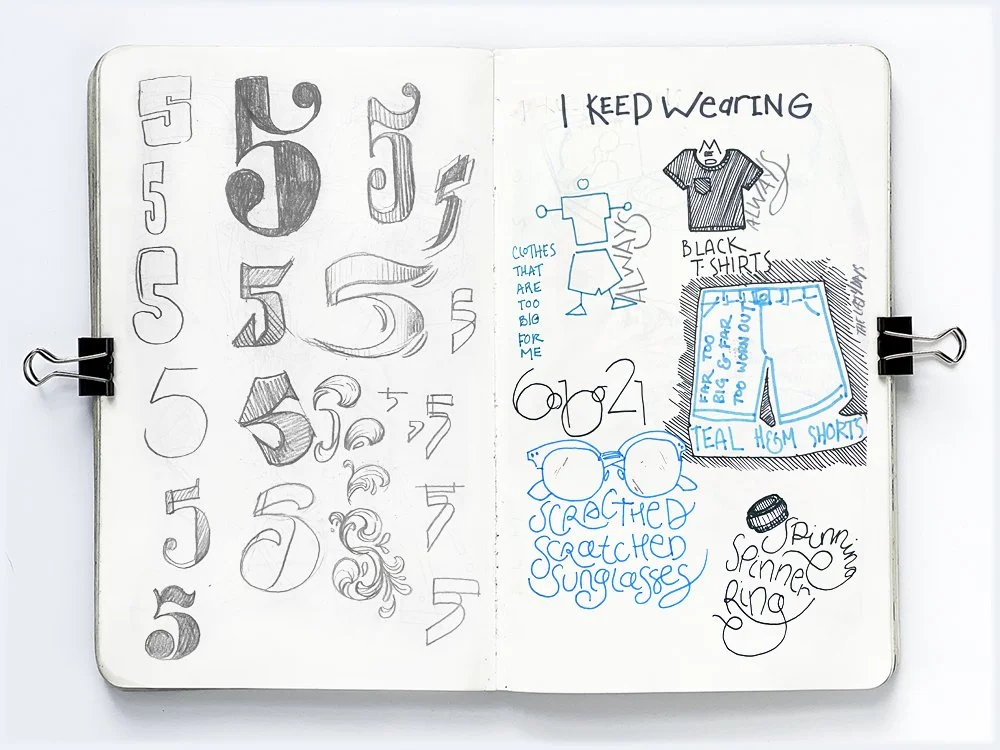 5 5 5
5 5
5 5 5 5
5 5 5 5
5 5 5
5 5
I KEEP WEARING
ALWAYS
BLACK
T-SHIRTS
CLOTHES
THAT
ARE
TOO
BIG
FOR
ME
ALWAYS
FAR TOO
BIG & FAR
TOO WORN OUT
TEAL H&M SHORTS
SCRACTHED
SCRATCHED
SUNGLASSES
Spinning
Spinner
Ring